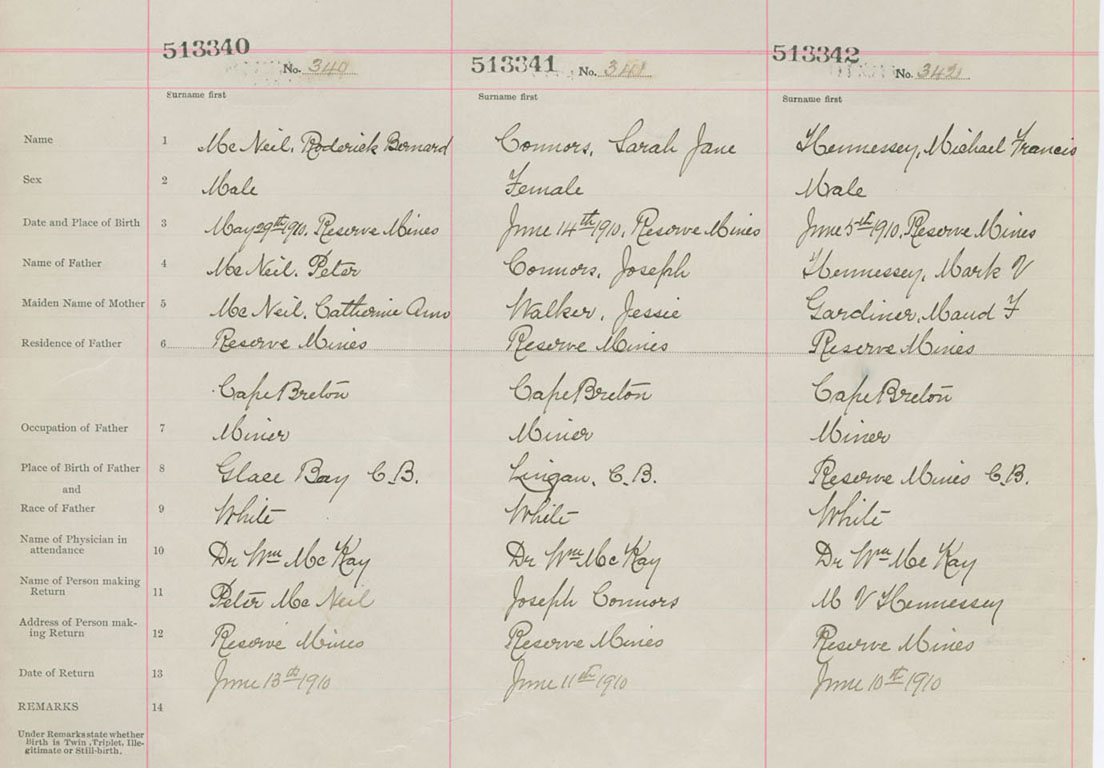 513340 No. 340 513341 No. 341 513342 No. 342
Surname first Surname first Surname first
Name 1 McNeil, Roderick Bernard Connors, Sarah Jane Hennessey, Michael Francis
Sex 2 Male Female Male
Date and Place of Birth 3 May 29th 1910, Reserve Mines June 14th 1910, Reserve Mines June 5th 1910, Reserve Mines
Name of Father 4 McNeil, Peter Connors, Joseph Hennessey, Mark V
Maiden Name of Mother 5 McNeil, Catherine Ann Walker, Jessie Gardiner, Maud F
Residence of Father 6 Reserve Mines Reserve Mines Reserve Mines
Cape Breton Cape Breton Cape Breton
Occupation of Father 7 Miner Miner Miner
Place of Birth of Father 8 Glace Bay C.B. Lingan, C.B. Reserve Mines C.B.
and
Race of Father 9 White White White
Name of Physician in
attendance 10 Dr Wm McKay Dr Wm McKay Dr Wm McKay
Name of Person making
Return 11 Peter McNeil Joseph Connors M V Hennessey
Address of Person mak-
ing Return 12 Reserve Mines Reserve Mines Reserve Mines
Date of Return 13 June 13th 1910 June 11th 1910 June 10th 1910
REMARKS 14
Under Remarks state whether
Birth is Twin, Triplet, Ille-
gitimate or Still-birth.